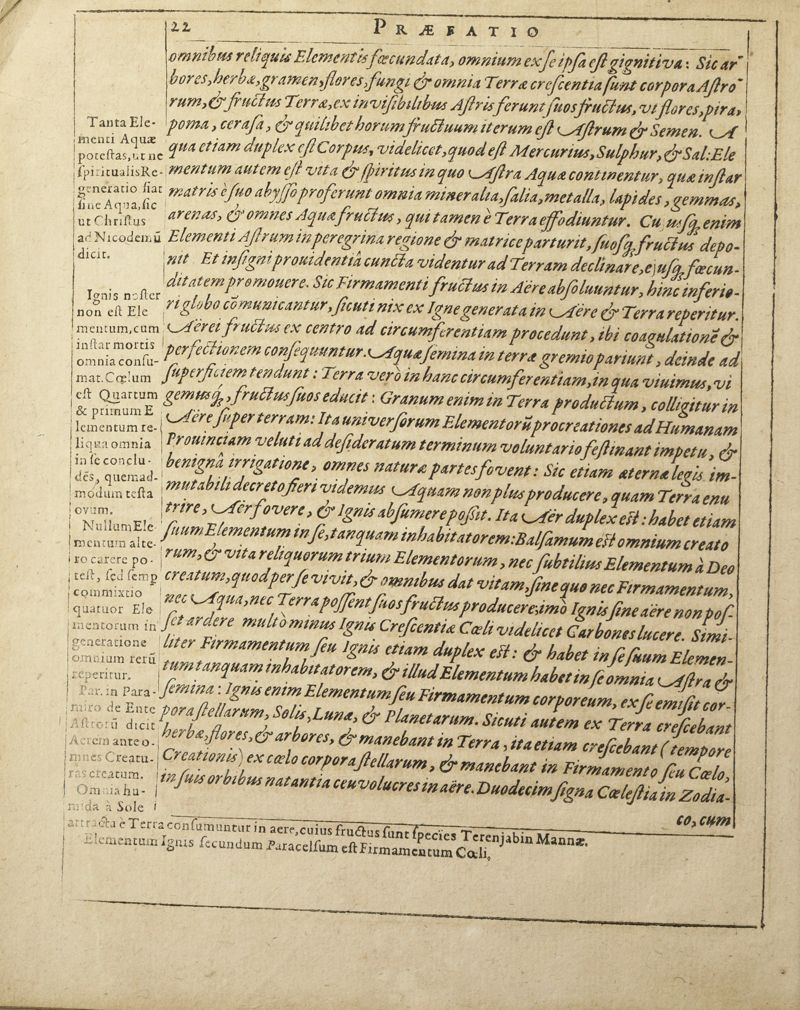 22
PRÆFATIO
omnibus reliquis Elementis fœcundata, omnium ex se ipsa est gignitiva: Sic ar-
bores, herbæ, gramen, flores, fungi & omnia Terræ crescentia sunt corpora Astro-
rum, & fructus Terræ, ex invisibilibus Astris ferunt suos fructus, vt flores, pira,
poma, cerasa, & quilibet horum fructuum iterum est Astrum & Semen. A
qua etiam duplex est Corpus, videlicet, quod est Mercurius, Sulphur, & Sal: Ele
mentum autem est vita & spiritus in quo Astra Aquæ continentur, quæ instar
matris è suo abysso proferunt omnia mineralia, salia, metalla, lapides, gemmas,
arenas, & omnes Aquæ fructus, qui tamen è Terra effodiuntur. Cuiusq; enim
Elementi Astrum in peregrina regione & matrice parturit, suosq; fructus depo-
nit Et insigni prouidentiâ cuncta videntur ad Terram declinare, ejusq; fœcun-
ditatem promouere. Sic Firmamenti fructus in Aëre absoluuntur, hinc inferio-
ri globo cōmunicantur, sicuti nix ex Igne generata in Aëre & Terra reperitur.
Aërei fructus ex centro ad circumferentiam procedunt, ibi coagulationē &
perfectionem consequuntur. Aquæ semina in terræ gremio pariunt, deinde ad
superficiem tendunt: Terra verò in hanc circumferentiam, in qua viuimus, vi
gemusq;, fructus suos educit: Granum enim in Terra productum, colligitur in
Aëre super terram: Ita univerſorum Elementorū procreationes ad Humanam
Prouinciam veluti ad desideratum terminum voluntario festinant impetu, &
benignâ irrigatione, omnes naturæ partes fovent: Sic etiam æternæ legis im-
mutabili decreto fieri videmus Aquam non plus producere, quam Terra enu
trire, Aër fovere, & Ignis absumere possit. Ita Aër duplex est: habet etiam
suum Elementum in se, tanquam inhabitatorem: Balsamum est omnium creato
rum, & vita reliquorum trium Elementorum, nec subtilius Elementum à Deo
creatum, quod per se vivit, & omnibus dat vitam, sine quo nec Firmamentum,
nec Aqua, nec Terra possent suos fructus producere; imò Ignis sine aëre non pos-
set ardere multo minus Ignis Crescentia Cœli videlicet Carbones lucere. Simi-
liter Firmamentum seu Ignis etiam duplex est: & habet in se suum Elemen-
tum tanquam inhabitatorem, & illud Elementum habet in se omnia Astra &
semina: Ignis enim Elementum seu Firmamentum corporeum, ex se emisit cor-
pora stellarum, Solis, Lunæ, & Planetarum. Sicuti autem ex Terra crescebant
herbæ, flores, & arbores, & manebant in Terra, ita etiam crescebant (tempore
Creationis) ex cœlo corpora stellarum, & manebant in Firmamento seu Cœlo,
in suis orbibus natantia ceu volucres in aëre. Duodecim signa Cœlestia in Zodia-
co, cum
Tanta Ele-
menti Aquæ
potestas, ut ne
spiritualis Re-
generatio fiat
sine Aqua, sic
ut Christus
ad Nicodemū
dicit.
Ignis noster
non est Ele
mentum, cum
instar mortis
omnia consu-
mat. Cœlum
est Quartum
& primum E
lementum re-
liqua omnia
in se conclu-
dēs, quemad-
modum testa
ovum.
Nullum Ele
mentum alte-
ro carere po-
test, sed semp
commixtio
quatuor Ele
mentorum in
generatione
omnium rerū
reperitur.
Par. in Para-
miro de Ente
Astrorū dicit
Aerem ante o-
mnes Creatu-
ras creatum.
Omnia hu-
mida à Sole
attracta è Terra consumuntur in aere, cuius fructus sunt species Terenjabin Mannæ.
Elementum Ignis secundum Paracelsum est Firmamentum Cœli,